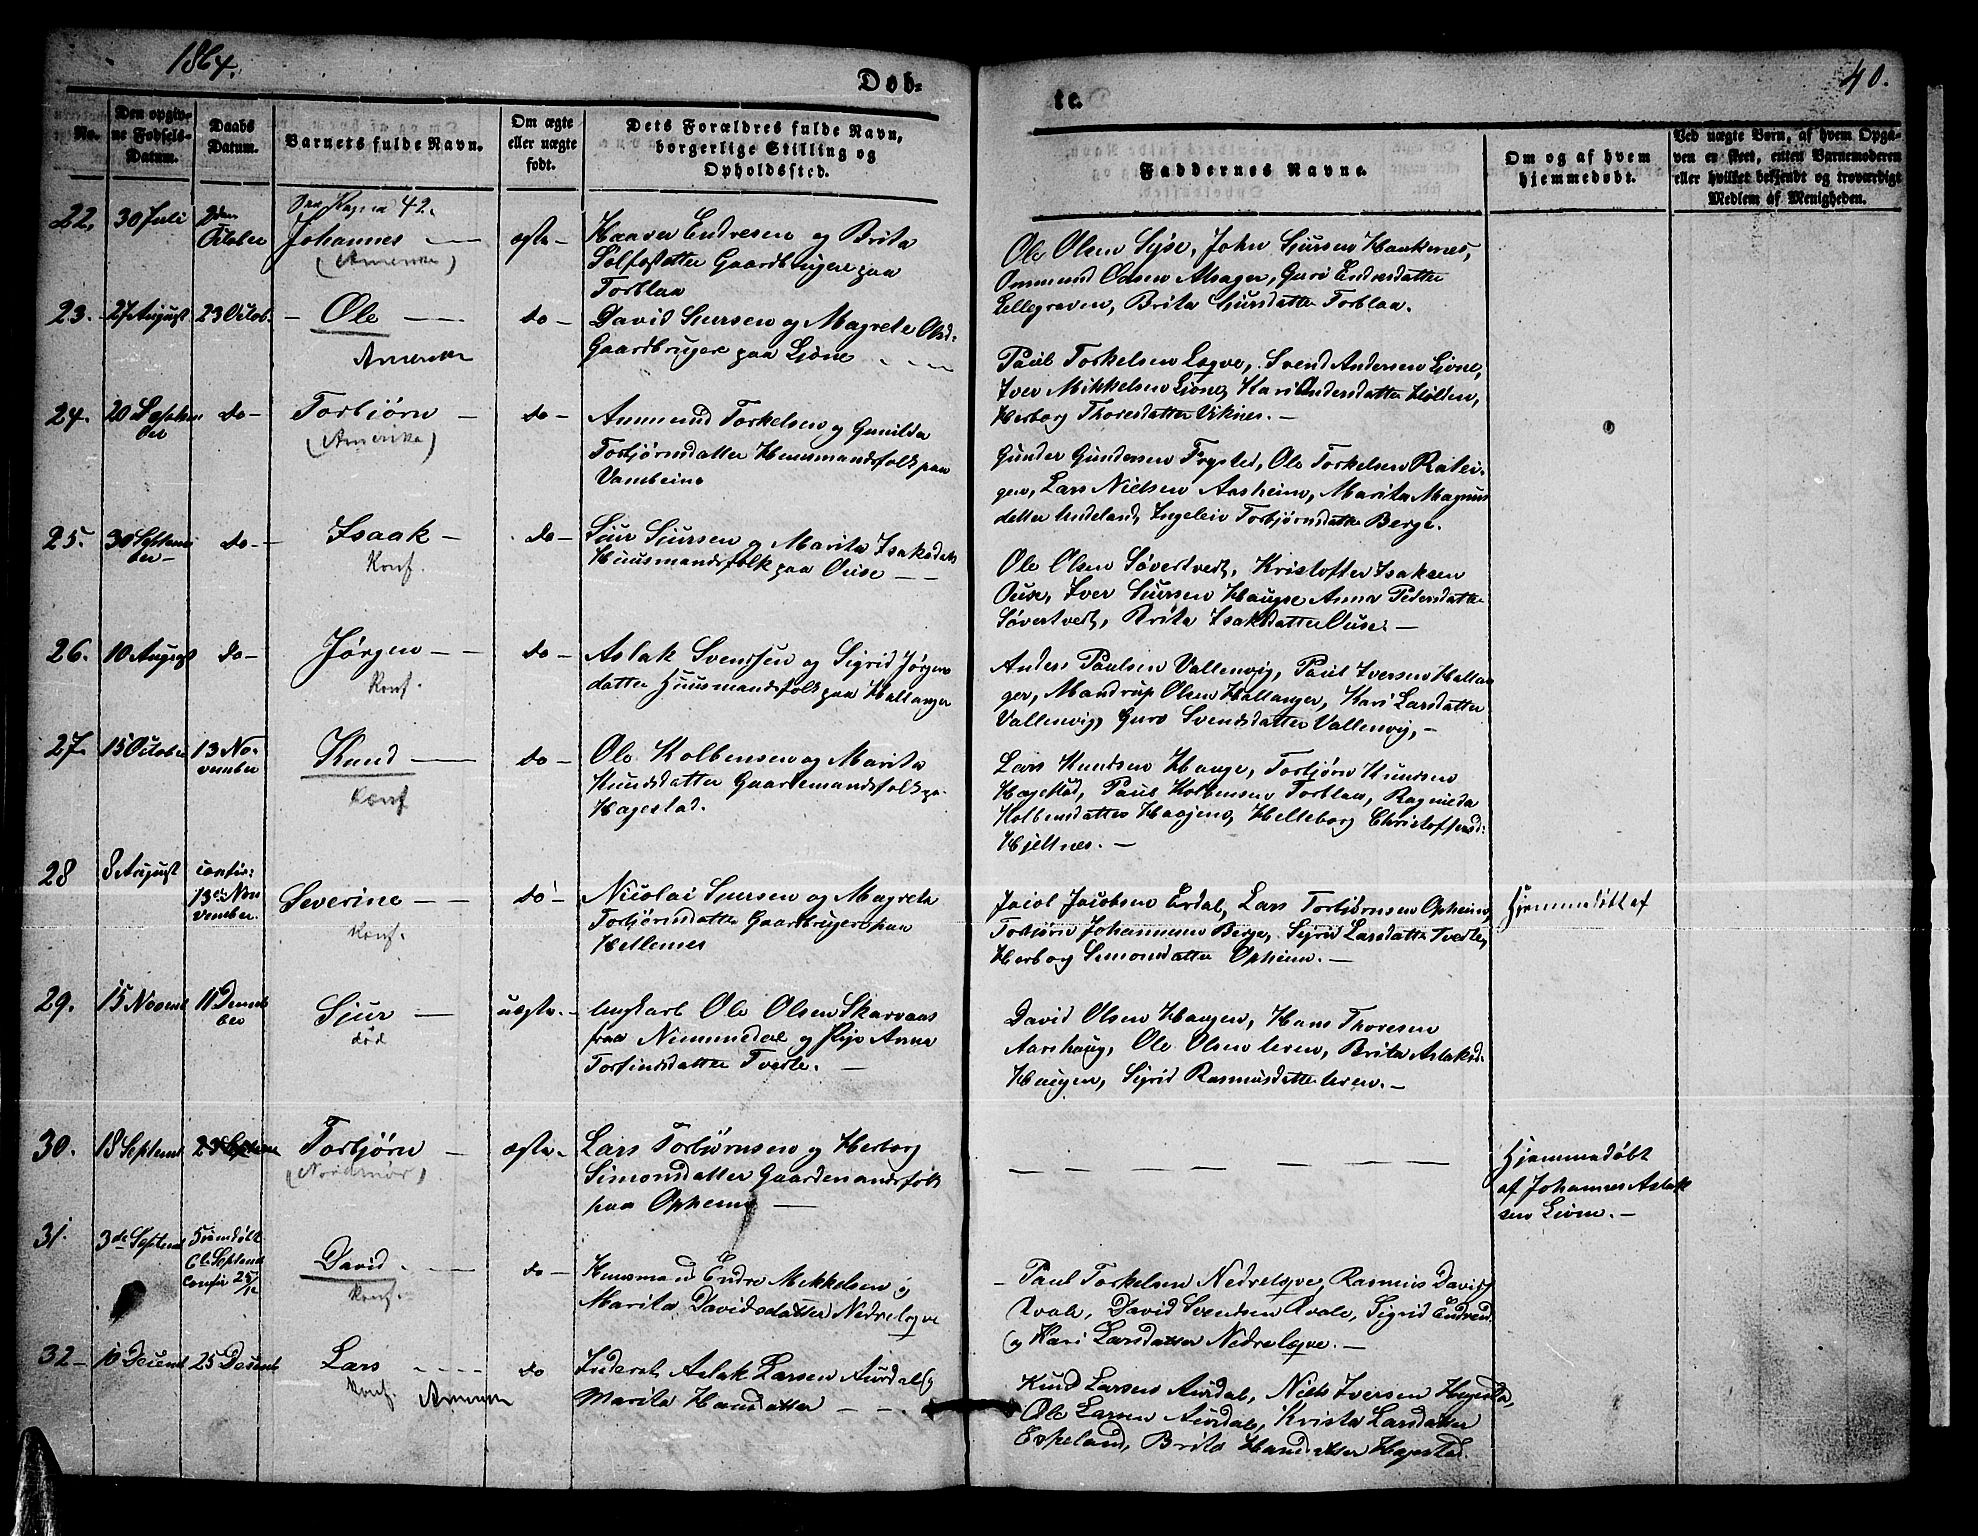 1864.
Døb-
te.
40.
No.
Den opgiv-
ne Fødsels-
Datum.
Daabs
Datum.
Barnets fulde Navn.
Om ægte
eller uægte
født.
Dets Forældres fulde Navn,
borgerlige Stilling og
Opholdssted.
Faddernes Navne.
Om og af hvem
hjemmedøbt.
Ved uægte Børn, af hvem Opga-
ven er skeet, enten Barnemoderen
eller hvilket bekjendt og troværdigt
Medlem af Menigheden.
22. 30 Juli 2den
October
42.
Johannes
(Amerika)
ægte -
Haaver Endresen og Brita
Gaardbrugere paa
Torblaa
Ole Olsen Syse, John Sjursen Haaksnes,
Ommund Olsen Alsager, Guro Endresdatter
Lellegraven, Brita Sjursdatter Torblaa.
23. 27 August 23 Octob. - Ole
Amerika
do -
David Sjursen og Magrete Olsd.
Gaardbrugere paa Ljone
Paul Torkelsen Legve, Svend Andersen Ljone,
Iver Mikkelsen Ljone, Kari Endersdatter Holden,
Herborg Thoresdatter Viknes. -
24. 20 Septem
ber
do - Torbjørn -
(Amerika)
do -
Ammund Torkelsen og Gunilda
Torbjørnsdatter Huusmandsfolk paa
Vambeim
Gunder Gundersen Frysted, Ole Torkelsen
gen, Lars Nielsen Aasheim, Marita Magnus
datter Undeland, Ingeleiv Torbjørnsdatter Berge.
25. 30 Septem
ber -
do - Isaak -
Konf.
do -
Sjur Sjursen og Marita Isaksdatt
Huusmandsfolk paa Ouse - -
Ole Olsen Søvertvedt, Kristoffer Isaksen
Ouse, Iver Sjursen Hauge Anna Pedersdatter
Søvertvedt, Brita Isaksdatter Ouse. -
26. 10 August do - Jørgen - -
Konf.
do -
Aslak Svendsen og Sigrid Jørgens
datter Huusmandsfolk paa Hallanger
Anders Paulsen Vallenvig, Paul Iversen Hallan
ger, Mandrup Olsen Hallanger, Kari Larsdatter
Vallenvig, Guro Svendsdatter Vallenvig, -
27. 15 October 13 No-
vember
Knud
Konf
do -
Ole Kolbensen og Marita
Knudsdatter Gaardemandsfolk pa
Hagestad.
Lars Knudsen Hauge, Torbjørn Knudsen
Hagestad, Paul Kolbensen Torblaa, Ragnilda
Kolbensdatter Haajem, Helleborg Christoffersd:
Hjeltnes. -
28 8 August confir:
13de No-
vember.
Severine - -
Konf.
do -
Nicolai Sjursen og Magrela
Torbjørnsdatter Gaardbrugere paa
Hellenes
Jacob Jacobsen Erdal, Lars Torbjørnsen Opheim,
Torbjørn Johannesen Berge, Sigrid Larsdatter Tvedte,
Herborg Simonsdatter Opheim. -
Hjemmedøbt af
29. 15 Novemb 11 Decem
ber
Sjur -
død
uægte. -
Ungkarl Ole Olsen Skarvaas
fraa Nummedal og Pige Anna
Torfinsdatter Tvedte. -
David Olsen Haugen, Hans Thoresen
Aarshaug, Ole Olsen Leven, Brita Aslaksd.
Haugen, Sigrid Rasmusdatter Leven. -
30. 18 Septemb 23 Septem Torbjørn -
(Nordmør)
ægte -
Lars Torbjørnsen og Herborg
Simonsdatter Gaardemandsfolk
paa Opheim -
Hjemmedøbt
af Johannes Aslak
sen Ljone. -
31. 3de Septemb
Septemb
Confir 25/12
David. -
Konf. -
do -
Huusmand Endre Mikkelsen og
Marita Davidsdatter Nedrelegve
- Paul Torkelsen Nedrelegve, Rasmus Davids
Qvale, David Svendsen Qvale, Sigrid Endresd
og Kari Larsdatter Nedrelegve. -
32 - 10 Decemb 25 Decemb Lars
Konf. Amerika
do
Inderst Aslak Larsen Aurdal og
Marita Hansdatter
Knud Larsen Aurdal, Niels Iversen Hagesta,
Ole Larsen Aurdal, Krista Larsdatter
Eskeland, Brita Hansdatter Hagestad.